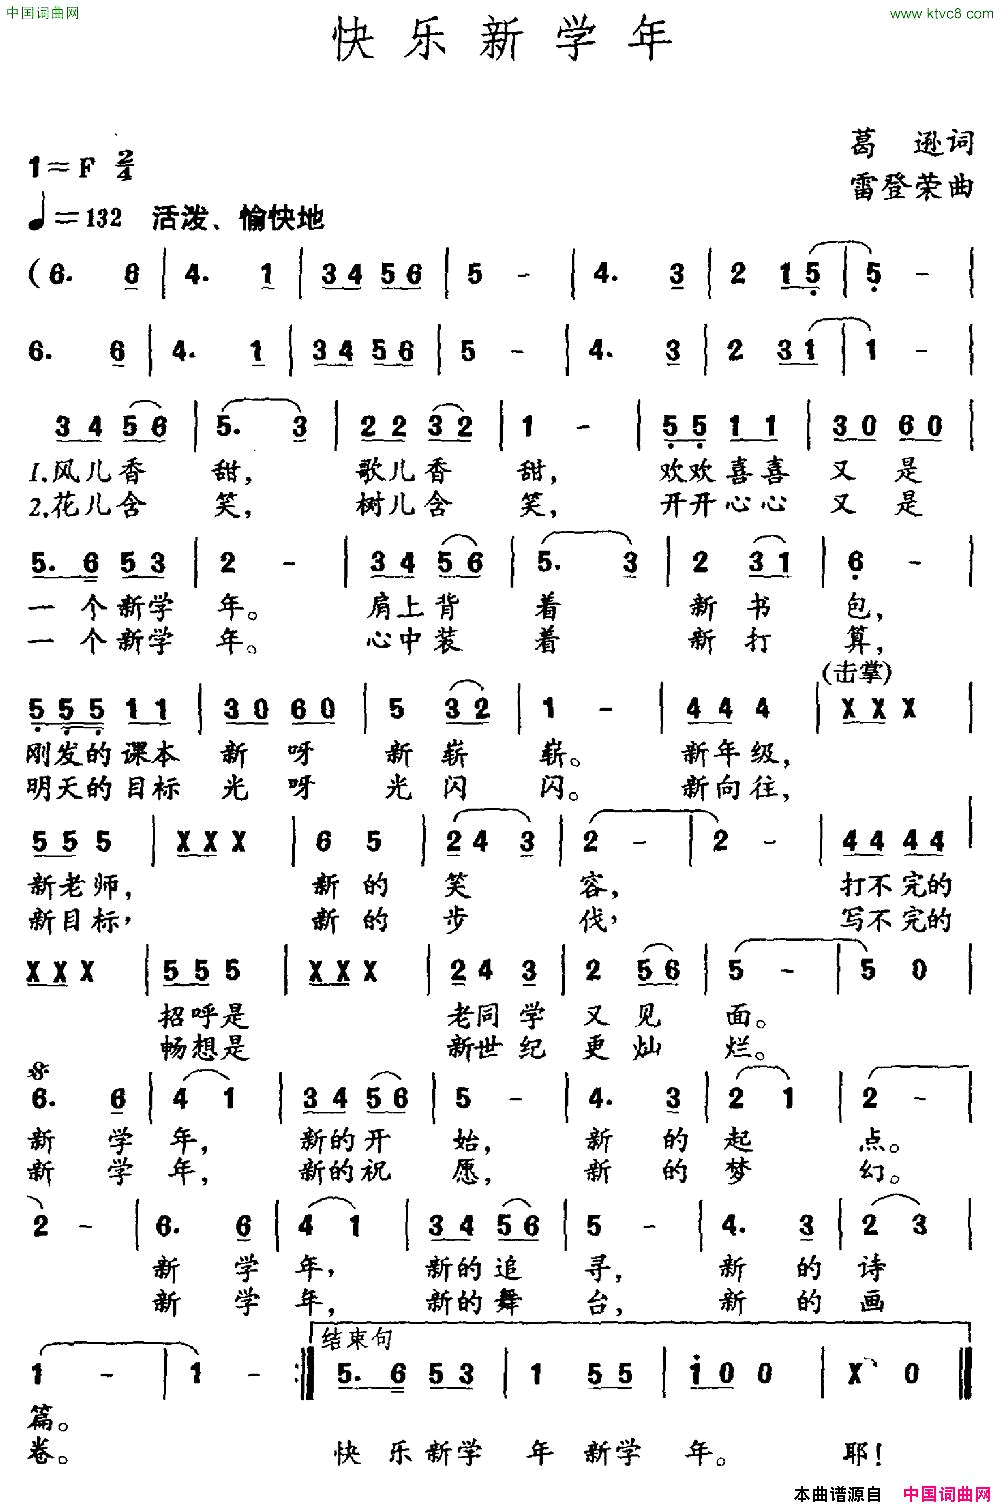 中国词曲网
www.ktvc8.com
快乐新学年
葛 逊词
雷登荣曲
1=F 2/4
♩=132 活泼、愉快地
(6. 6 | 4. 1 | 3 4 5 6 | 5 - | 4. 3 | 2 1 5 | 5 - |
6. 6 | 4. 1 | 3 4 5 6 | 5 - | 4. 3 | 2 3 1 | 1 - |
3 4 5 6 | 5. 3 | 2 2 3 2 | 1 - | 5 5 1 1 | 3 0 6 0 |
1.风儿香 甜, 歌儿香 甜, 欢欢喜喜 又 是
2.花儿含 笑, 树儿含 笑, 开开心心 又 是
5. 6 5 3 | 2 - | 3 4 5 6 | 5. 3 | 2 3 1 | 6 - |
一 个 新学 年。 肩上背 着 新 书 包,
一 个 新学 年。 心中装 着 新 打 算,
(击掌)
5 5 5 1 1 | 3 0 6 0 | 5 3 2 | 1 - | 4 4 4 | X X X |
刚发的课本 新 呀 新 崭 崭。 新年级,
明天的目标 光 呀 光 闪 闪。 新向往,
5 5 5 | X X X | 6 5 | 2 4 3 | 2 - | 2 - | 4 4 4 4 |
新老师, 新 的 笑 容, 打不完的
新目标, 新 的 步 伐, 写不完的
X X X | 5 5 5 | X X X | 2 4 3 | 2 5 6 | 5 - | 5 0 |
招呼是 老同 学 又 见 面。
畅想是 新世 纪 更 灿 烂。
6. 6 | 4 1 | 3 4 5 6 | 5 - | 4. 3 | 2 1 | 2 - |
新 学 年, 新的开 始, 新 的 起 点。
新 学 年, 新的祝 愿, 新 的 梦 幻。
2 - | 6. 6 | 4 1 | 3 4 5 6 | 5 - | 4. 3 | 2 3 |
新 学 年, 新的追 寻, 新 的 诗
新 学 年, 新的舞 台, 新 的 画
结束句
1 - | 1 - :| 5. 6 5 3 | 1 5 5 | 1 0 0 | X 0 |
篇。
卷。 快 乐 新学 年 新学 年。 耶!
本曲谱源自 中国词曲网